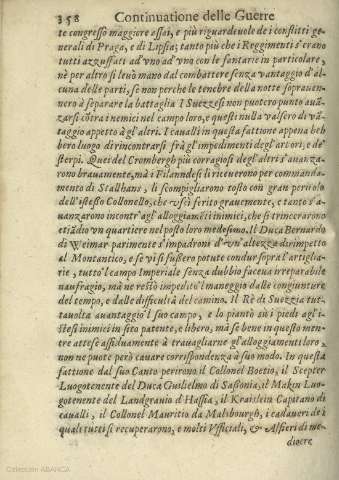 358 Continuatione delle Guerre
te congresso maggiore assai, e più riguardeuole de i conflitti ge-
nerali di Praga, e di Lipsia; tanto più che i Reggimenti s'erano
tutti azzuffati ad vno ad vno con le fantarie in particolare,
nè per altro si leuò mano dal combattere senza vantaggio d'al-
cuna delle parti, se non perche le tenebre della notte soprauen-
nero à separare la battaglia I Suezzesi non puotero punto auã-
zarsi cõtra i nemici nel campo loro, e questi nulla valsero di vã-
taggio appetto à gl'altri. I caualli in questa fattione appena heb
bero luogo di rincontrarsi frà gl'impedimenti degl'arbori, e de'
sterpi. Quei del Crombergh più corragiosi degl'altri s'auanza-
rono brauamente, mà i Filandesi li riceuerono per commanda-
mento di Stallhans, li scompigliarono tosto con gran pericolo
dell'istesso Collonello, che v'fcì ferito grauemente, e tanto s'a-
uanzarono incontr'agl'alloggiamẽti inimici, che si trincerarono
etiãdio vn quartiere nel posto loro medesimo. Il Duca Bernardo
di Weimar parimente s'impadronì d'vn'altezza dirimpetto
al Montantico, e se vi si fußero potute condur sopra l'artiglia-
rie, tutto'l campo Imperiale senza dubbio faceua irreparabile
naufragio, mà ne restò impedito'l maneggio dalle congiunture
del tempo, e dalle difficoltà del camino. Il Rè di Suezzia tut-
tauolta auantaggiò'l suo campo, e lo piantò sù i piedi agl'i-
stessi inimici in sito patente, e libero, mà se bene in questo men-
tre attese assiduamente à trauagliarne gl'alloggiamenti loro,
non ne puote però cauare correspondenza à suo modo. In questa
fattione dal suo Canto perirono il Collonel Boetio, il Scepter
Luogotenente del Duca Guslielmo di Sassonia, il Makin Luo-
gotenente del Landgrauio d'Hassia, il Kraislein Capitano di
caualli, il Collonel Mauritio da Malsbourgh, i cadaueri de i
quali tutti si recuperarono, e molti Vfficiali, & Alfieri di me-
diocre
Colección ABANCA